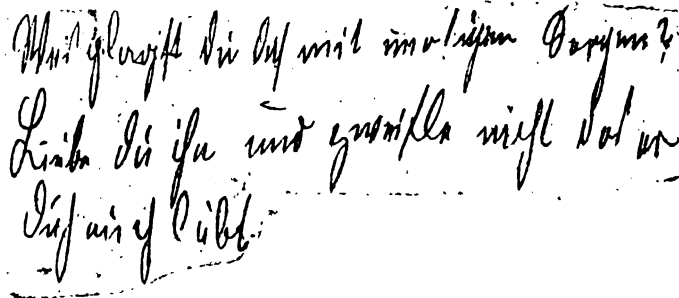 Was plagst du dich mit unnötigen Sorgen?
Liebe du ihn und zweifle nicht das er
dich auch liebt.